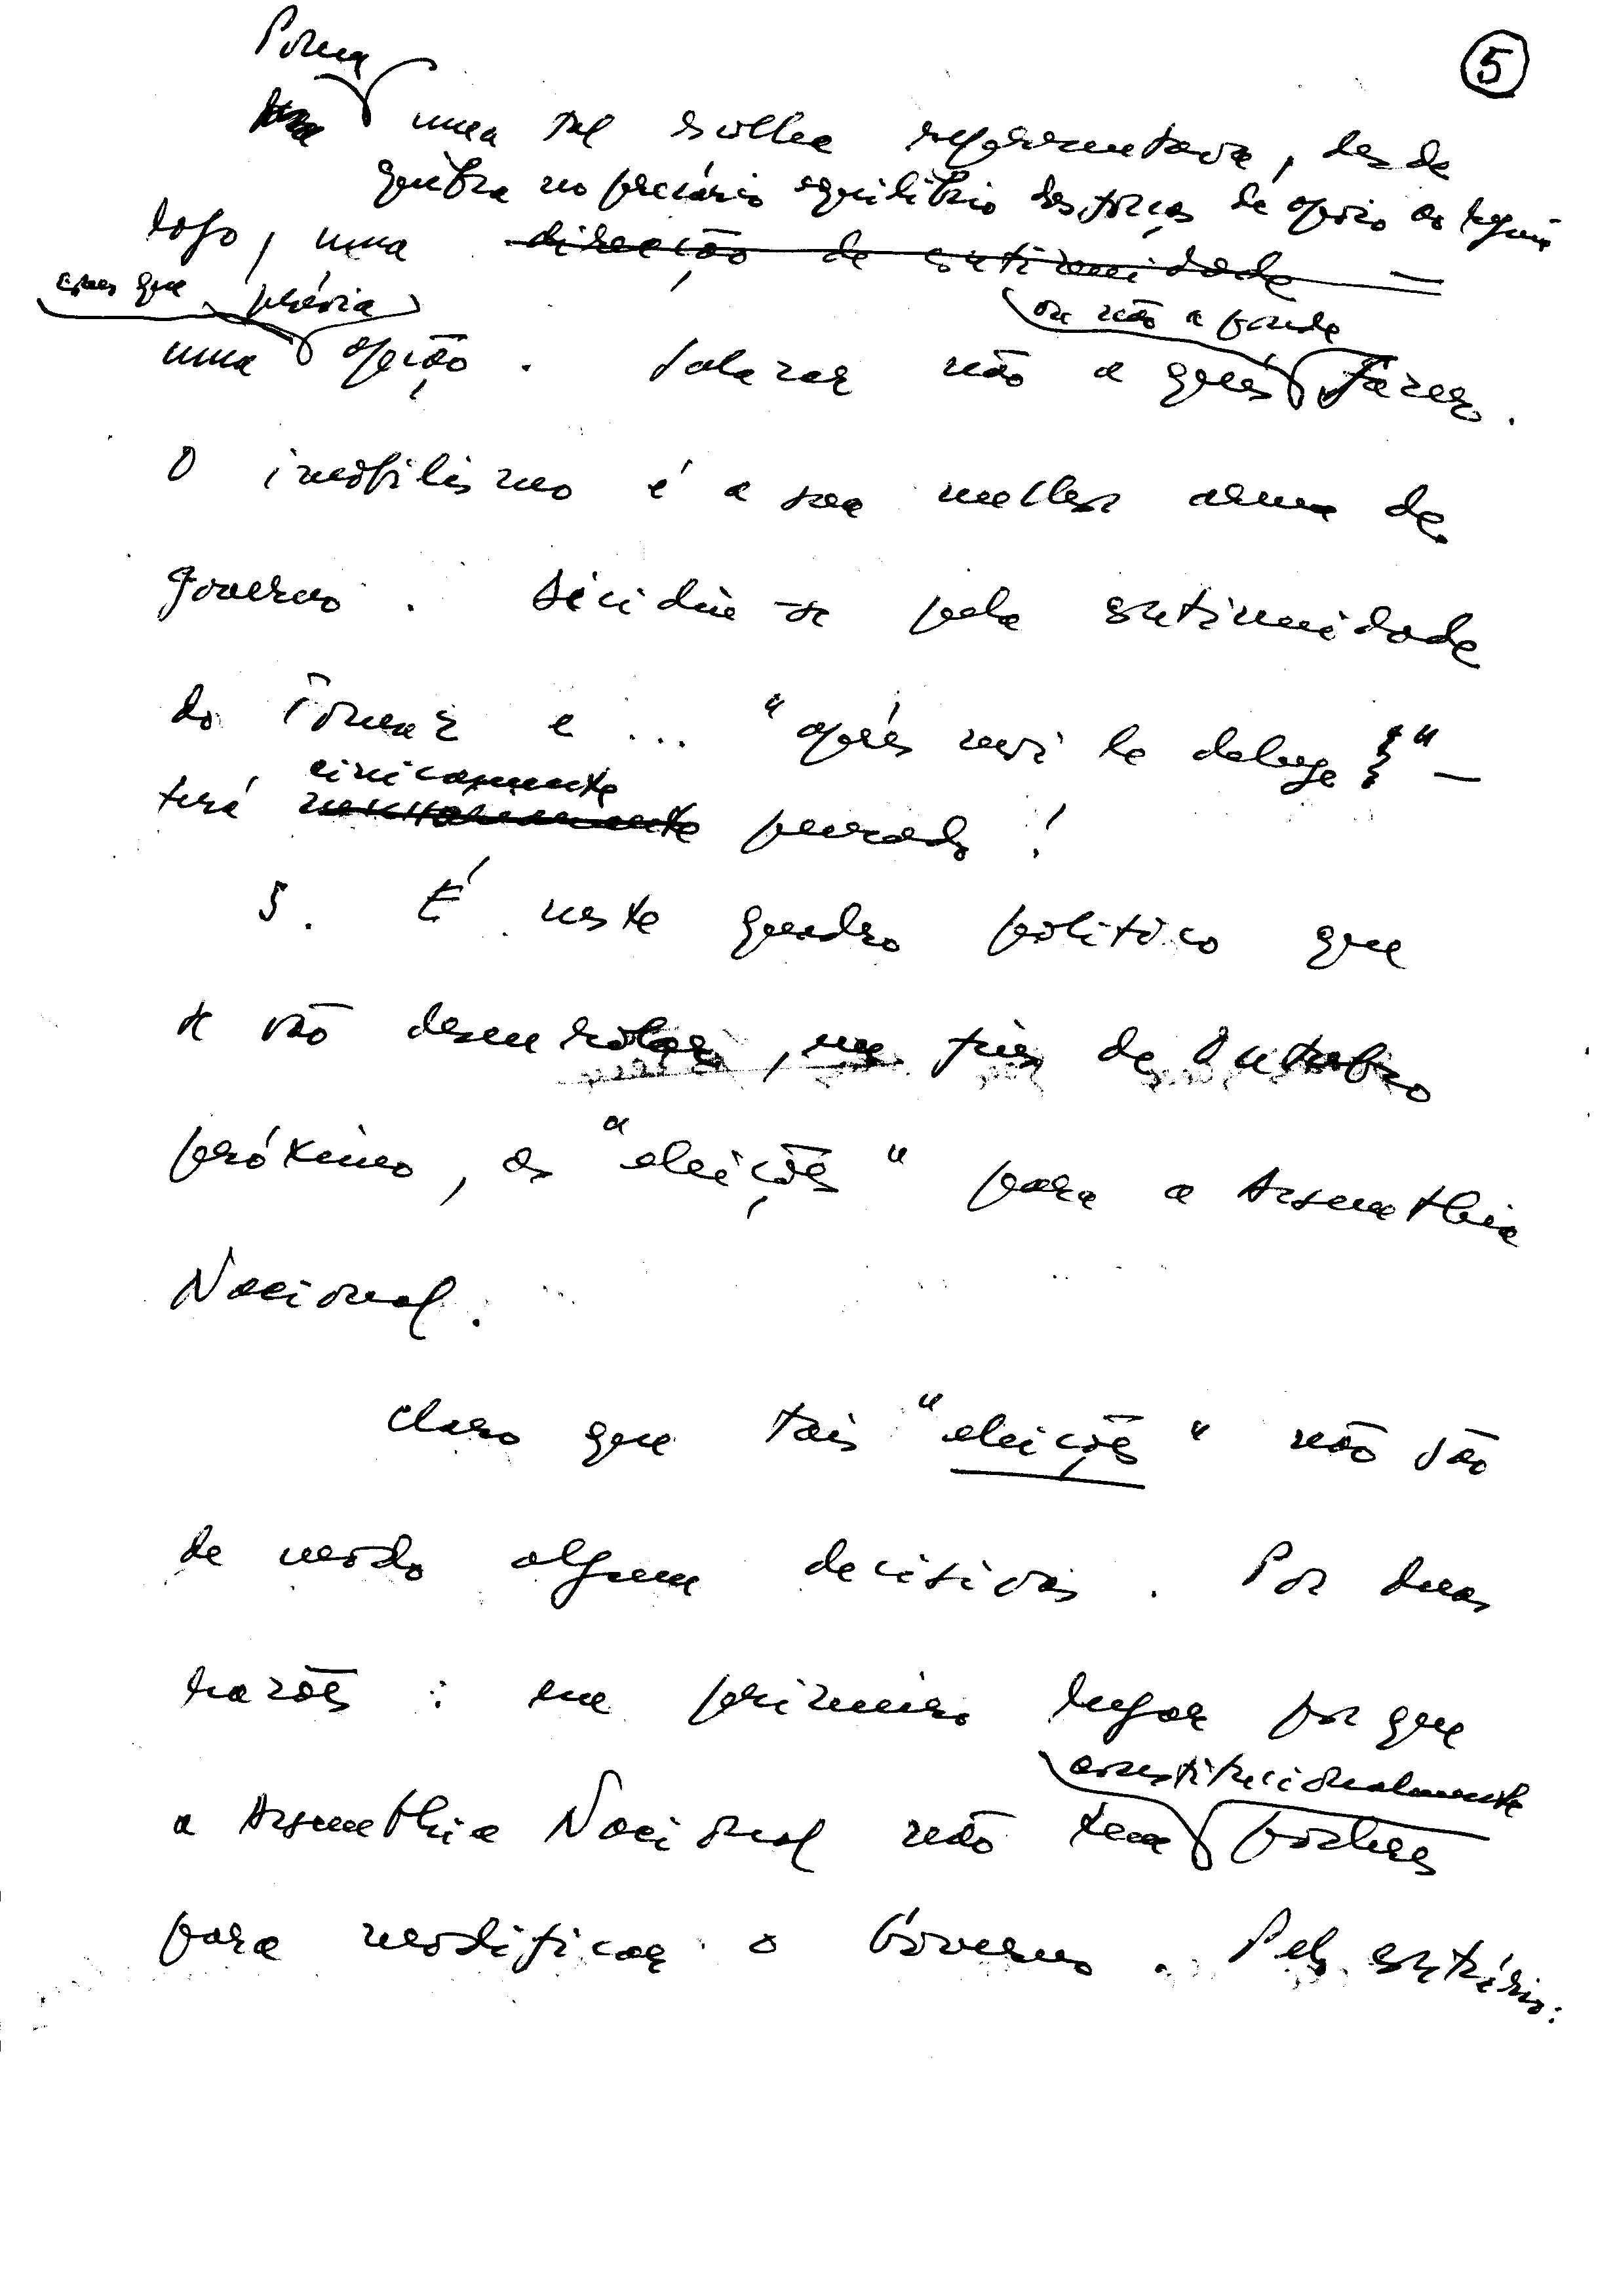 5
Porém
uma tal escolha representava, desde
quebra no precário equilíbrio das forças de apoio ao regime
logo, uma direcção de continuidade
como que prévia
ou não a pôude
uma opção. Salazar não a quis fazer.
O imobilismo é a sua melhor arma de
governo. Decidiu-se pela continuidade
do Tomaz e... "après moi le deluge!" —
civicamente
terá pensado!
5. É neste quadro político que
se vão desenrolar, em fins de Outubro
próximo, as "eleições" para a Assembleia
Nacional.
Claro que tais "eleições" não são
de modo algum decisivas. Por duas
razões: em primeiro lugar porque
constitucionalmente
a Assembleia Nacional não tem poderes
para modificar o Governo. Pelo contrário: